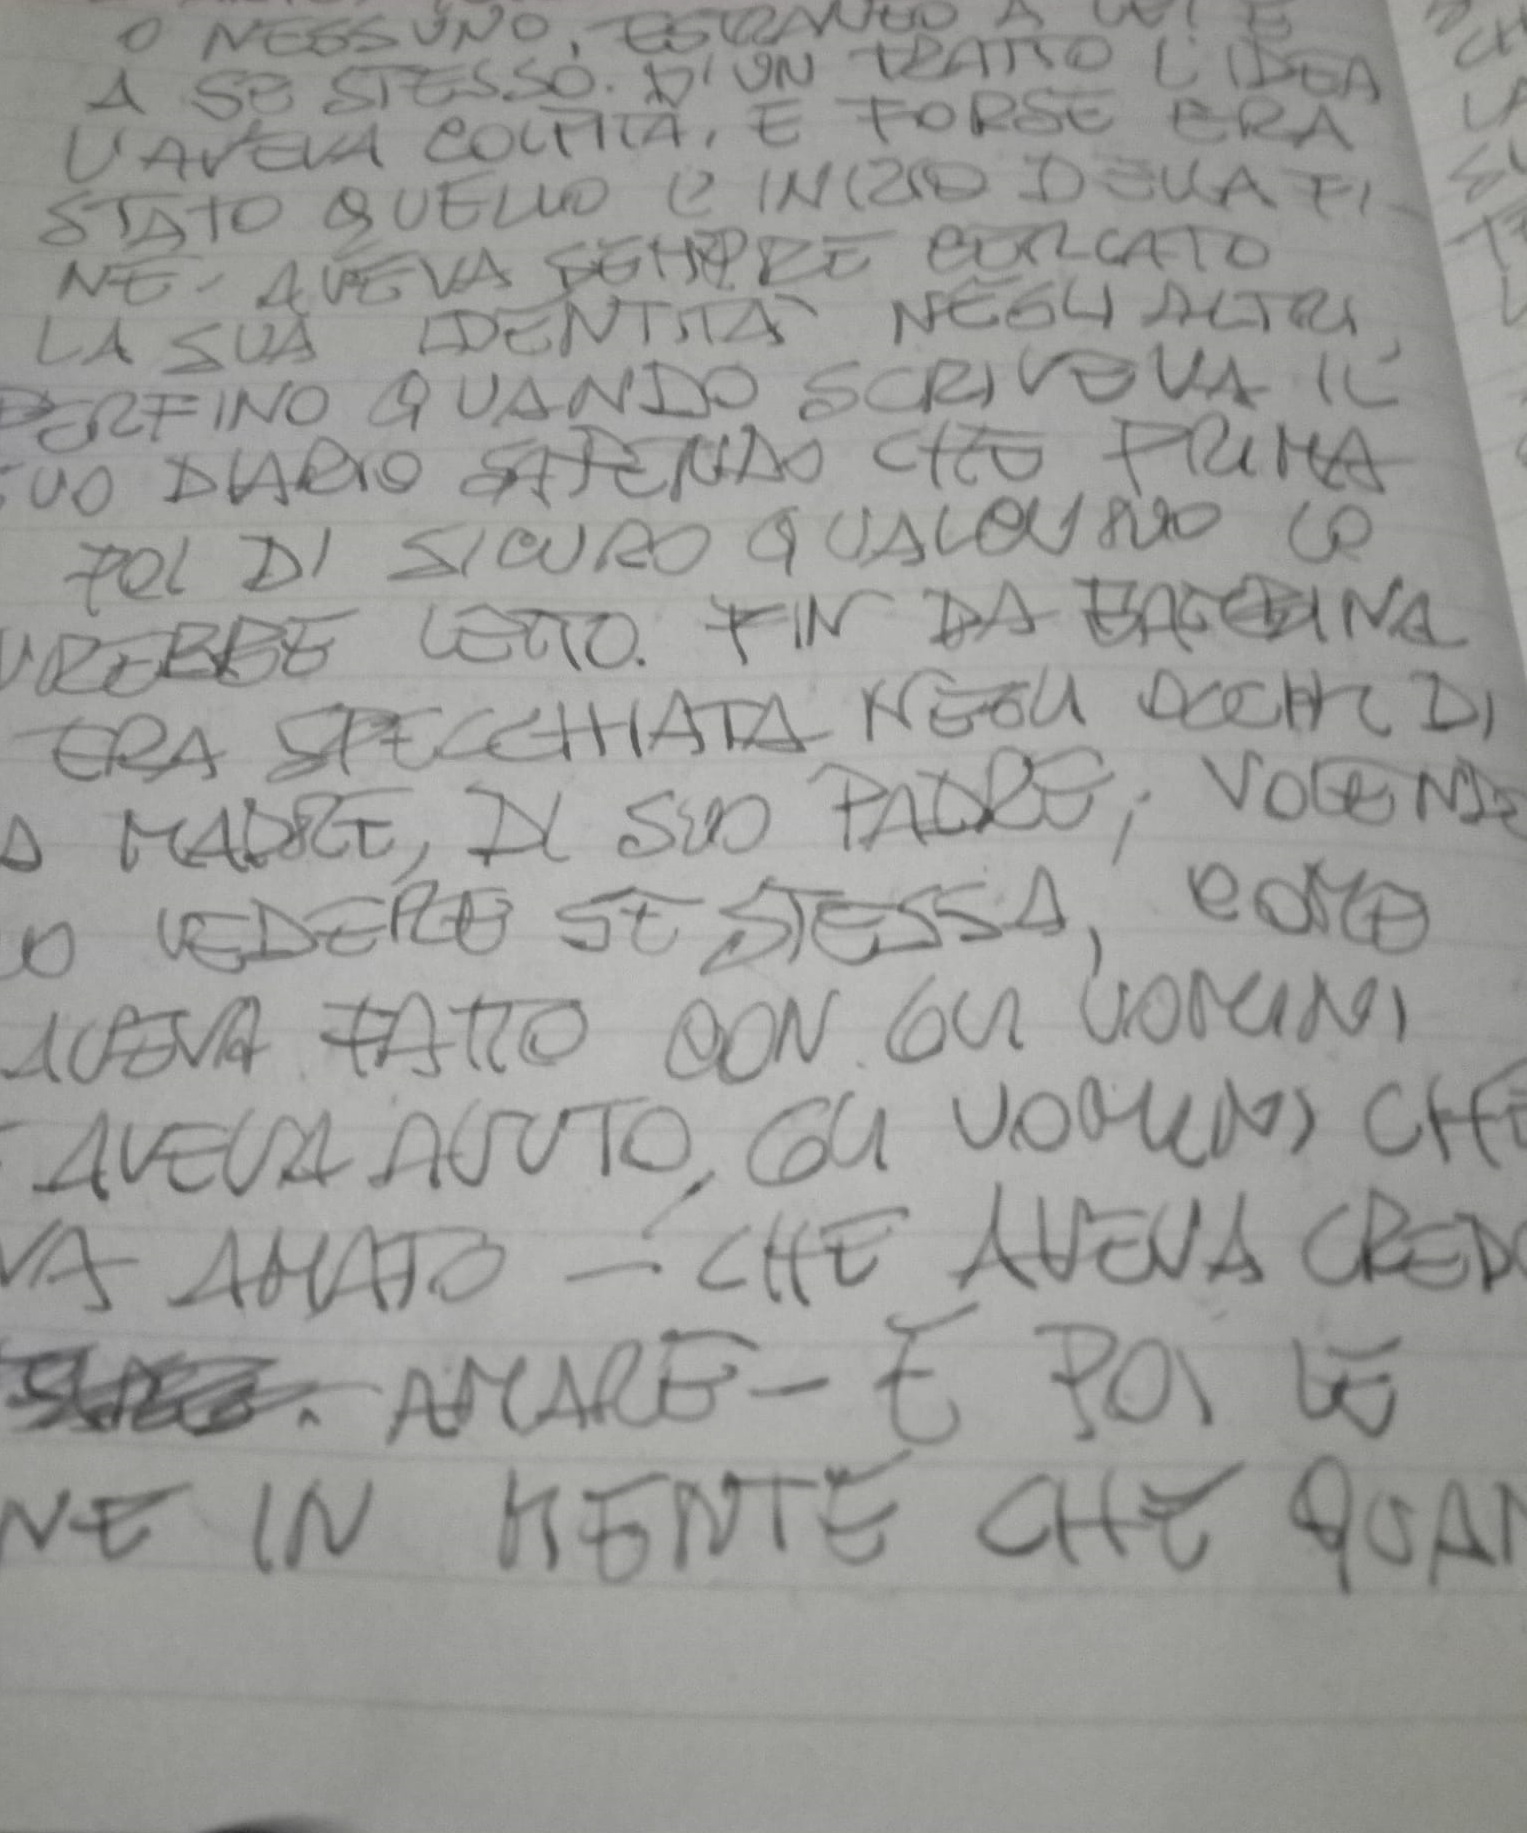 O NESSUNO, ESTRANEO A LEI E
A SE STESSO. D'UN TRATTO L'IDEA
L'AVEVA COLPITA, E FORSE ERA
STATO QUELLO L'INIZIO DELLA FI-
NE. AVEVA SEMPRE CERCATO
LA SUA IDENTITÀ NEGLI ALTRI,
PERFINO QUANDO SCRIVEVA IL
SUO DIARIO SAPENDO CHE PRIMA
POI DI SICURO QUALCUNO LO
VREBBE LETTO. FIN DA BAMBINA
ERA SPECCHIATA NEGLI OCCHI DI
A MADRE, DI SUO PADRE, VOLENDO
VEDERE SE STESSA, COME
AVEVA FATTO CON GLI UOMINI
AVEVA AVUTO, GLI UOMINI CHE
VA AMATO - CHE AVEVA CREDU
AMARE - E POI LE
NE IN MENTE CHE QUAN